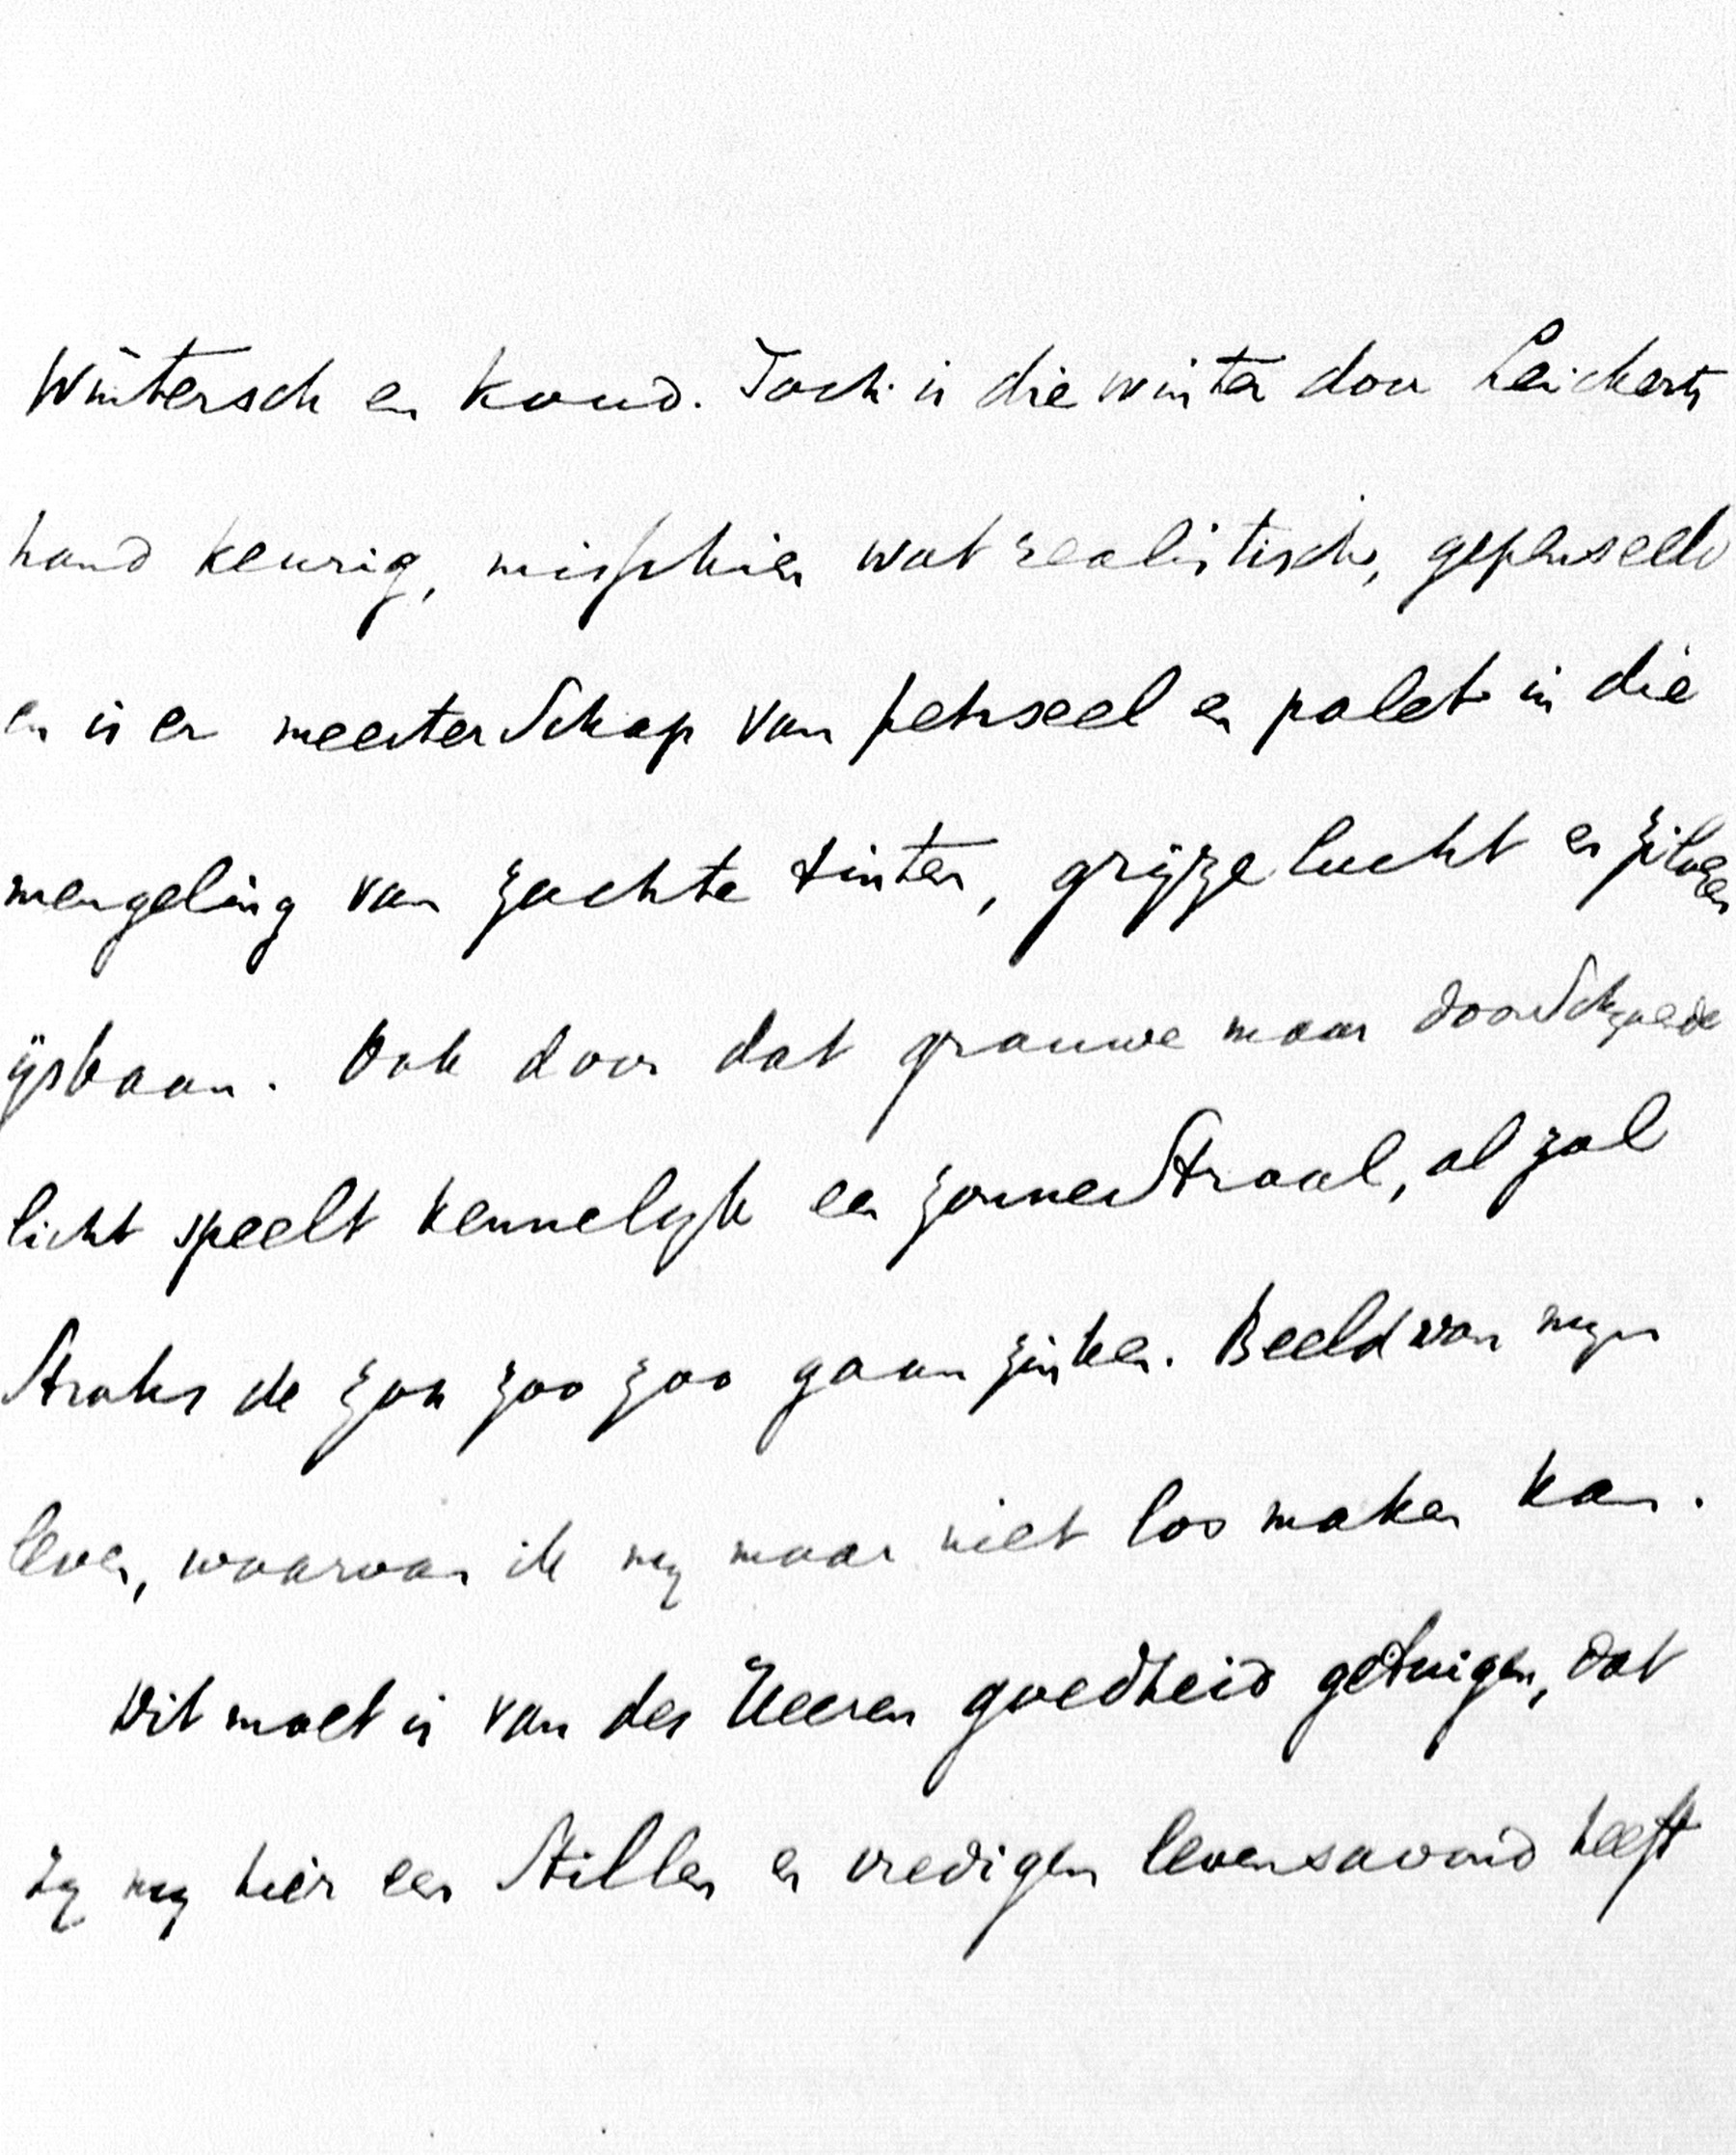 Wintersch en koud. Toch is die winter door Leickerts
hand keurig, misschien wat realistisch, gepenseeld
en is er meesterschap van penseel en palet in die
mengeling van zachte tinten, grijze lucht en zilveren
ijsbaan. Ook door dat grauwe maar
licht speelt kennelijk een zonnestraal, al zal
straks de zon zoo zoo gaan zinken. Beeld van mijn
leven, waarvan ik mij maar niet los maken kan.
Dit moet ik van des Heeren goedheid getuigen, dat
hij mij hier een stillen en vredigen levensavond heeft